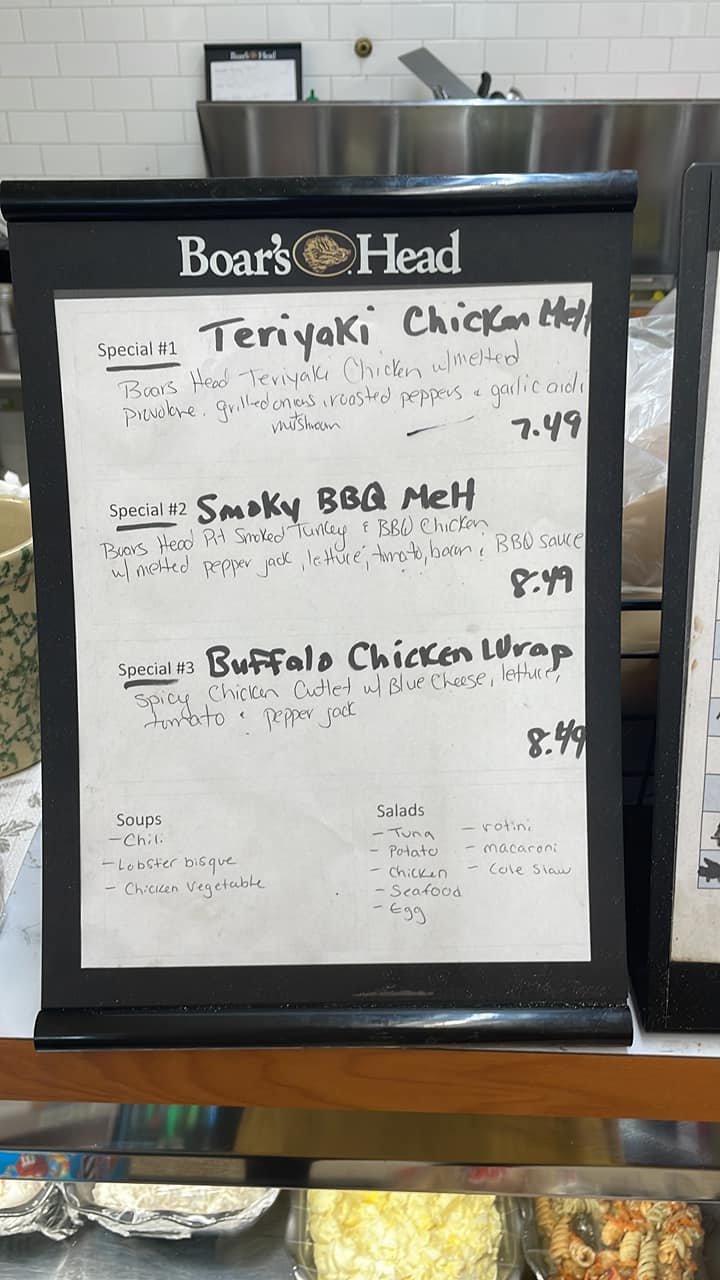 Boar's Head
Boar's Head
Special #1 Teriyaki Chicken Melt
Boars Head Teriyaki Chicken w/melted
provolone, grilled onions, roasted peppers & garlic aioli
mushroom
7.49
Special #2 Smoky BBQ Melt
Boars Head Pit Smoked Turkey & BBQ Chicken
w/ melted pepper jack, lettuce, tomato, bacon & BBQ sauce
8.49
Special #3 Buffalo Chicken Wrap
Spicy Chicken Cutlet w/ Blue Cheese, lettuce,
tomato & pepper jack
8.49
Soups
- Chili
- Lobster bisque
- Chicken Vegetable
Salads
- Tuna - rotini
- Potato - macaroni
- Chicken - Cole Slaw
- Seafood
- Egg